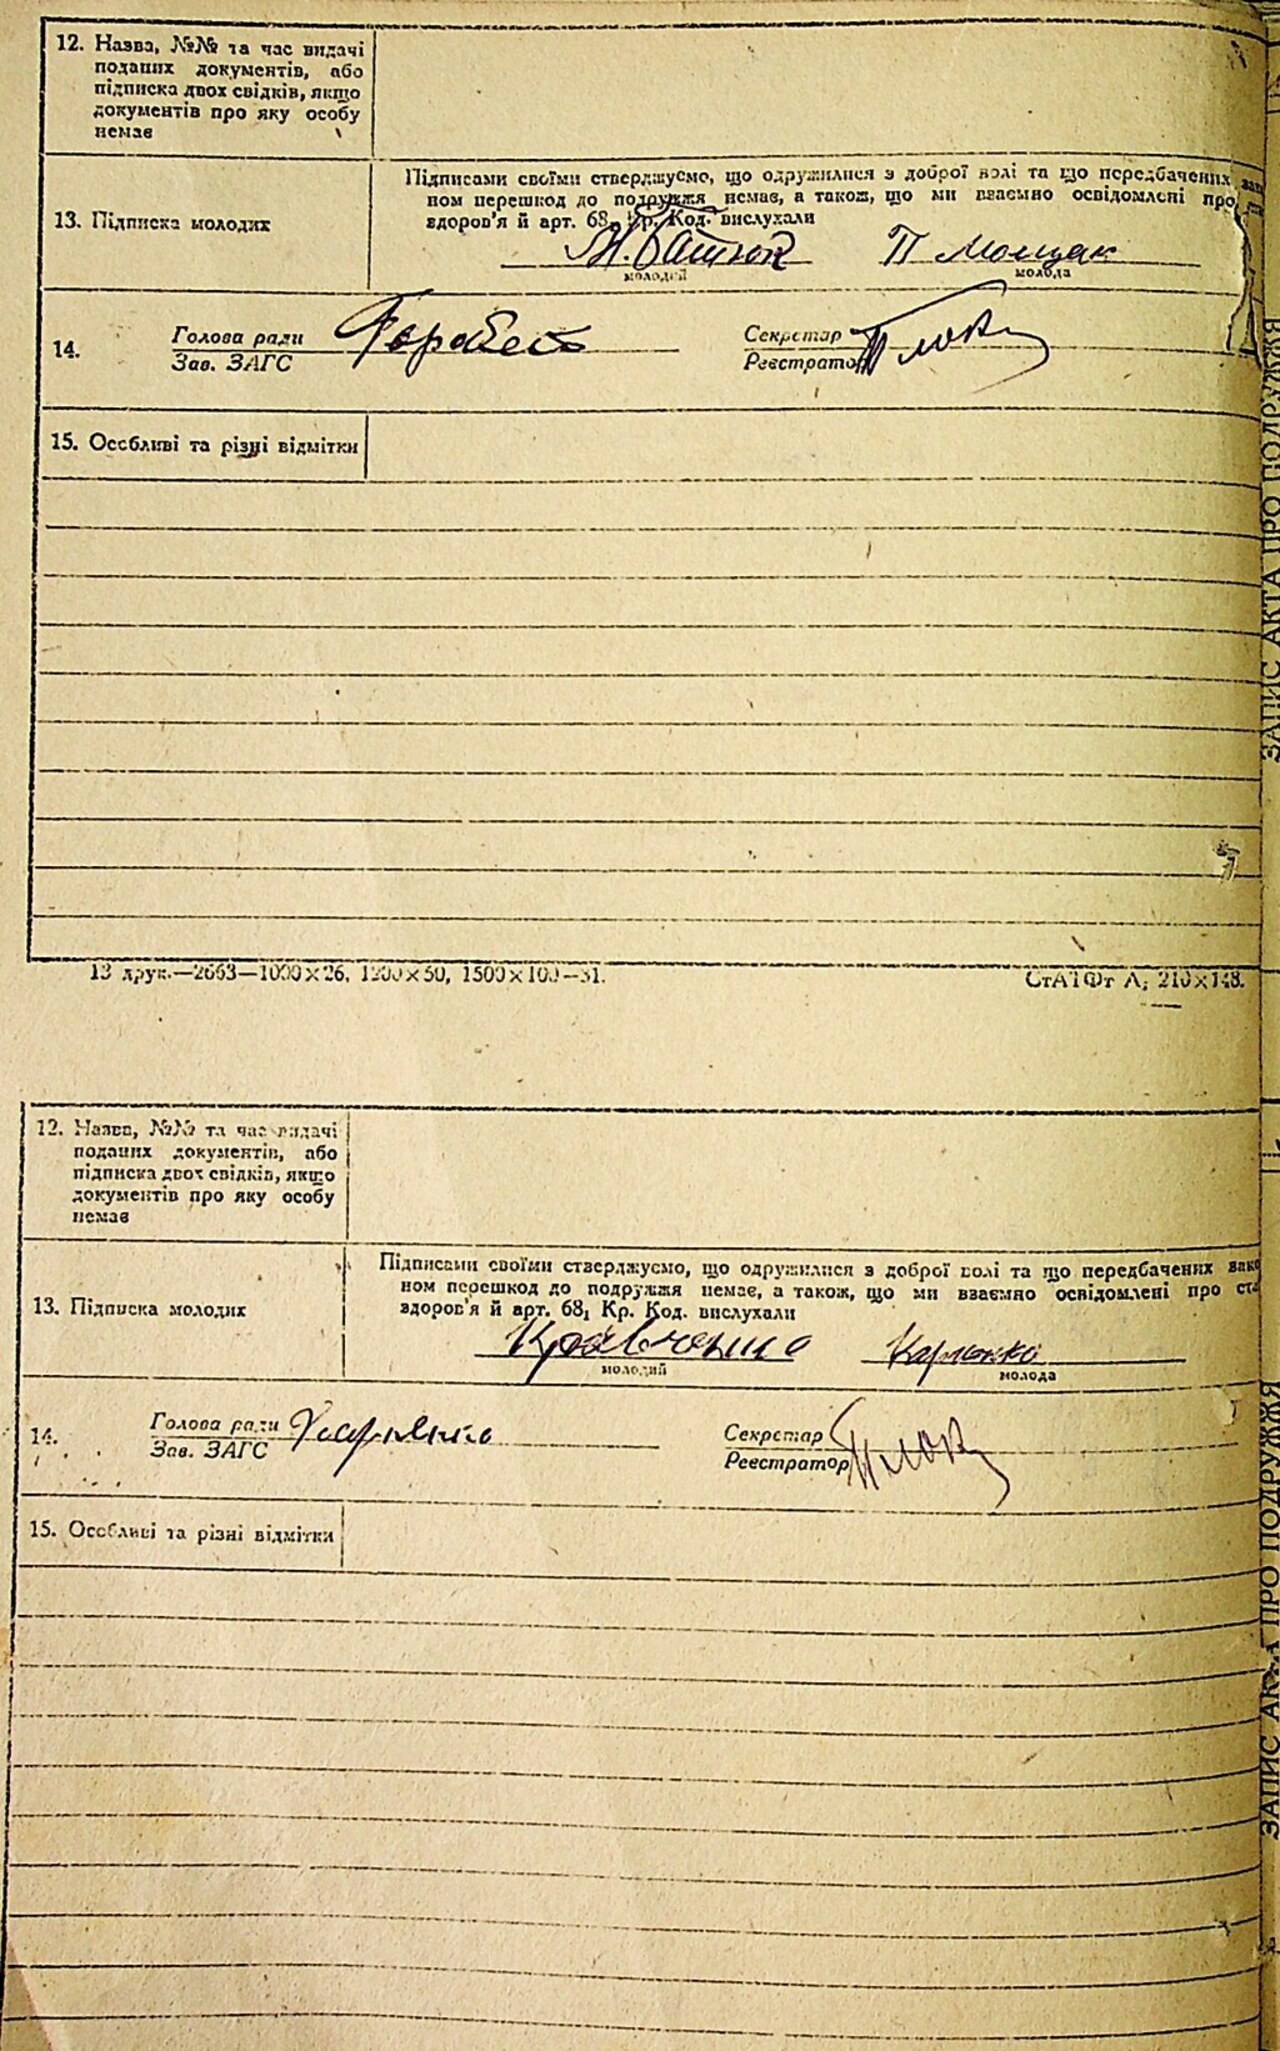 12. Назва, №№ та час видачі
поданих документів, або
підписка двох свідків, якщо
документів про яку особу
немає
13. Підписка молодих
Підписами своїми стверджуємо, що одружилися з доброї волі та що передбачених
ном перешкод до подружжя немає, а також, що ми взаємно освідомлені про
здоров'я й арт. 68₁ Кр. Код. вислухали
П Мощак
молодий
молода
14.
Голова ради
Зав. ЗАГС
Секретар
Реєстратор
15. Особливі та різні відмітки
13 друк.—2663—1000×26, 1200×50, 1500×100—31.
СтАТФт А₅ 210×148.
ЗАПИС АКТА ПРО ПОДРУЖЖЯ
12. Назва, №№ та час видачі
поданих документів, або
підписка двох свідків, якщо
документів про яку особу
немає
13. Підписка молодих
Підписами своїми стверджуємо, що одружилися з доброї волі та що передбачених зако
ном перешкод до подружжя немає, а також, що ми взаємно освідомлені про ста
здоров'я й арт. 68₁ Кр. Код. вислухали
Кравченко
молодий
молода
14.
Голова ради Харченко
Зав. ЗАГС
Секретар
Реєстратор
15. Особливі та різні відмітки
ЗАПИС АКТА ПРО ПОДРУЖЖЯ